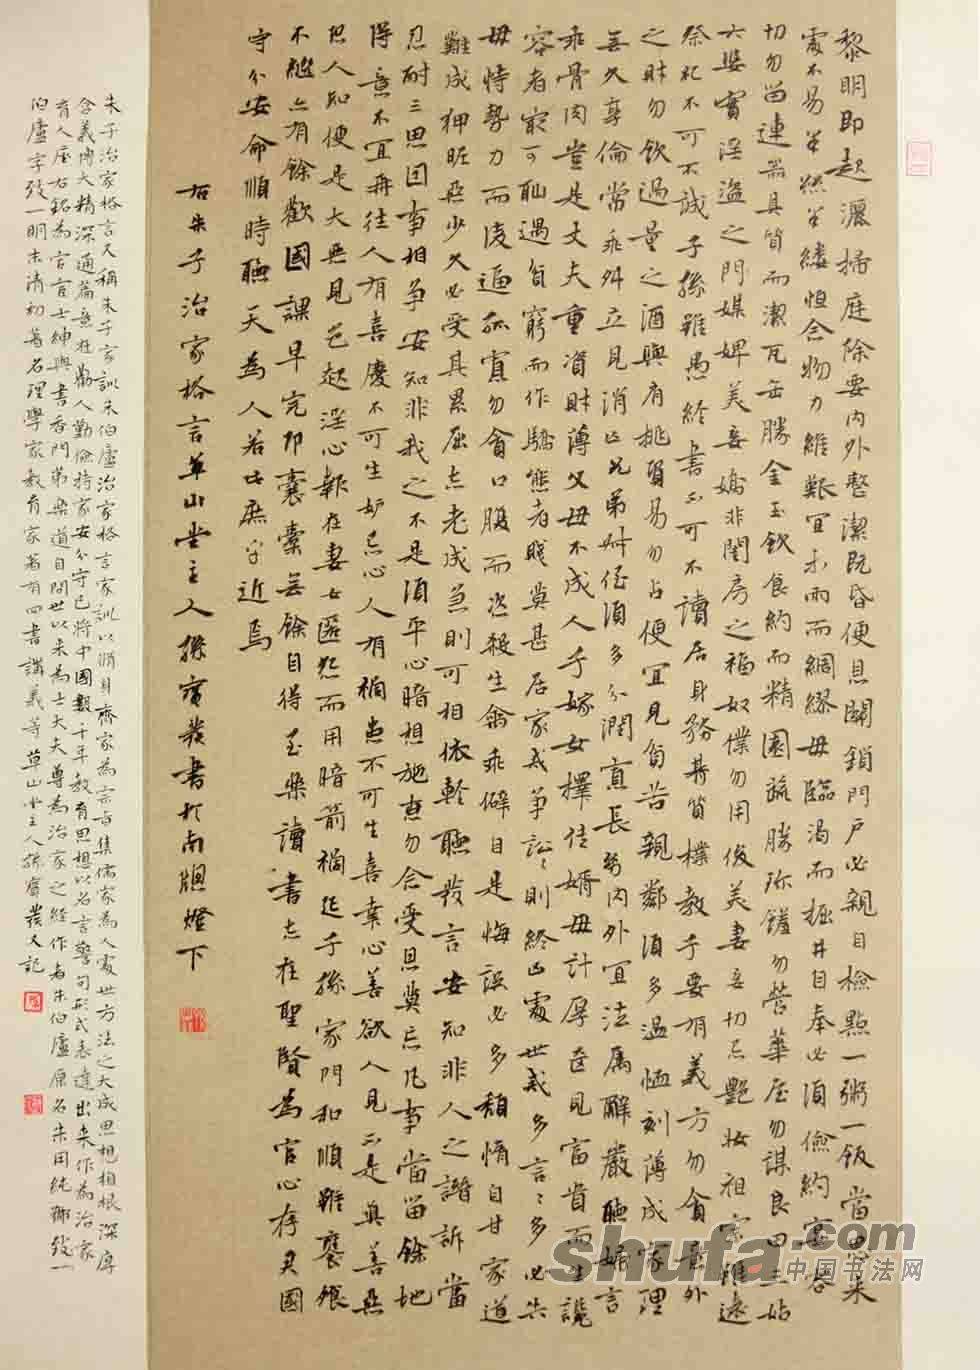 黎明即起灑掃庭除要內外整潔既昏便息關鎖門戶必親自檢點一粥一飯當思來
處不易半絲半縷恒念物力維艱宜未雨而綢繆毋臨渴而掘井自奉必須儉約宴客
切勿留連器具質而潔瓦缶勝金玉飲食約而精園蔬勝珍饈勿營華屋勿謀良田三姑
六婆實淫盜之門媒婢美妾嬌非閨房之福奴僕勿用俊美妻妾切忌艷妝祖宗雖遠
祭祀不可不誠子孫雖愚經書不可不讀居身務期質樸教子要有義方勿貪意外
之財勿飲過量之酒與肩挑貿易勿占便宜見貧苦親鄰須多溫恤刻薄成家理
無久享倫常乖舛立見消亡兄弟叔侄須多分潤寡長幼內外宜法屬辭嚴聽婦言
乖骨肉豈是丈夫重資財薄父母不成人子嫁女擇佳婿毋計厚奩見富貴而生讒
容者最可恥遇貧窮而作驕態者賤莫甚居家戒爭訟訟則終凶處世戒多言言多必失
毋恃勢力而凌逼孤寡勿貪口腹而恣殺生禽乖僻自是悔誤必多頹惰自甘家道
難成狎昵惡少久必受其累屈志老成急則可相依輕聽發言安知非人之譖訴當
忍耐三思因事相爭安知非我之不是須平心暗想施惠勿念受恩莫忘凡事當留餘地
得意不宜再往人有喜慶不可生妒忌心人有禍患不可生喜幸心善欲人見不是真善惡
恐人知便是大惡見色起淫心報在妻女匿怨而用暗箭禍延子孫家門和順雖饔飧
不繼亦有餘歡國課早完即囊橐無餘自得至樂讀書志在聖賢為官心存君國
守分安命順時聽天為人若此庶乎近焉
右朱子治家格言草山堂主人孫寶發書於南窗燈下
朱子治家格言又稱朱子家訓朱伯廬治家格言家訓以修身齊家為宗旨集儒家為人處世方法之大成思想植根深厚
含義博大精深通篇意在勸人勤儉持家安分守己將中國數千年教育思想以名言警句形式表達出來作為治家
有人座右銘為官宦士紳與書香門第樂道自問世以來為士大夫尊為治家之經作者朱伯廬原名朱用純號致一
伯廬字致一明末清初著名理學家教育家著有四書講義等草山堂主人孫寶發又記
shufa.com
中国书法网